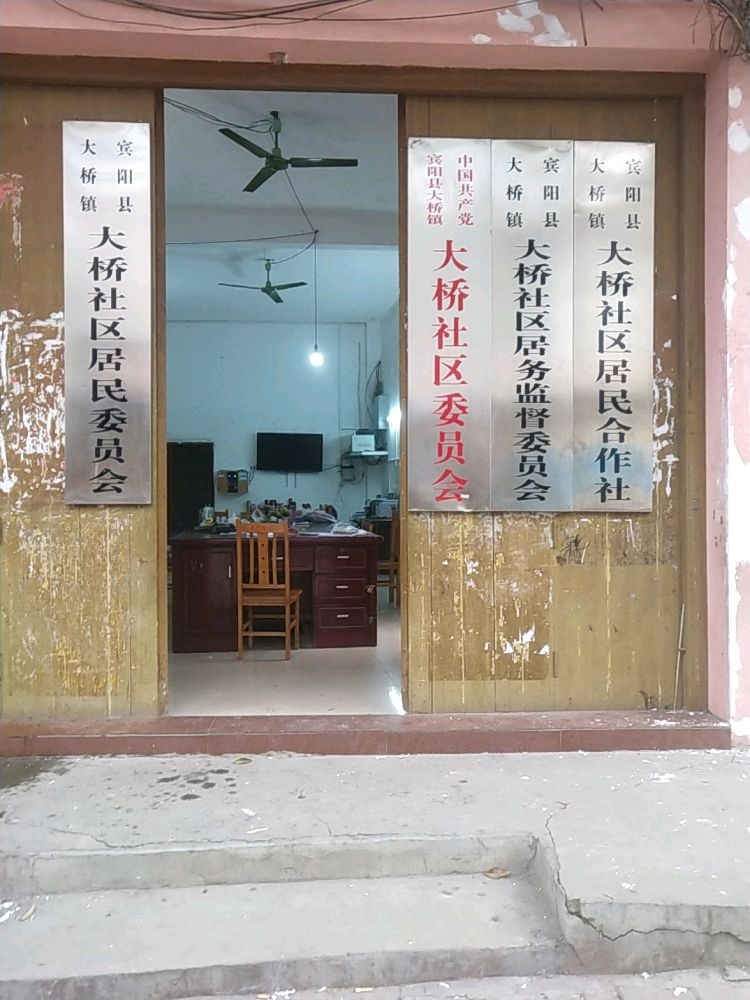 宾阳县
大桥镇
大桥社区居民委员会
中国共产党
宾阳县大桥镇
大桥社区委员会
宾阳县
大桥镇
大桥社区居务监督委员会
宾阳县
大桥镇
大桥社区居民合作社